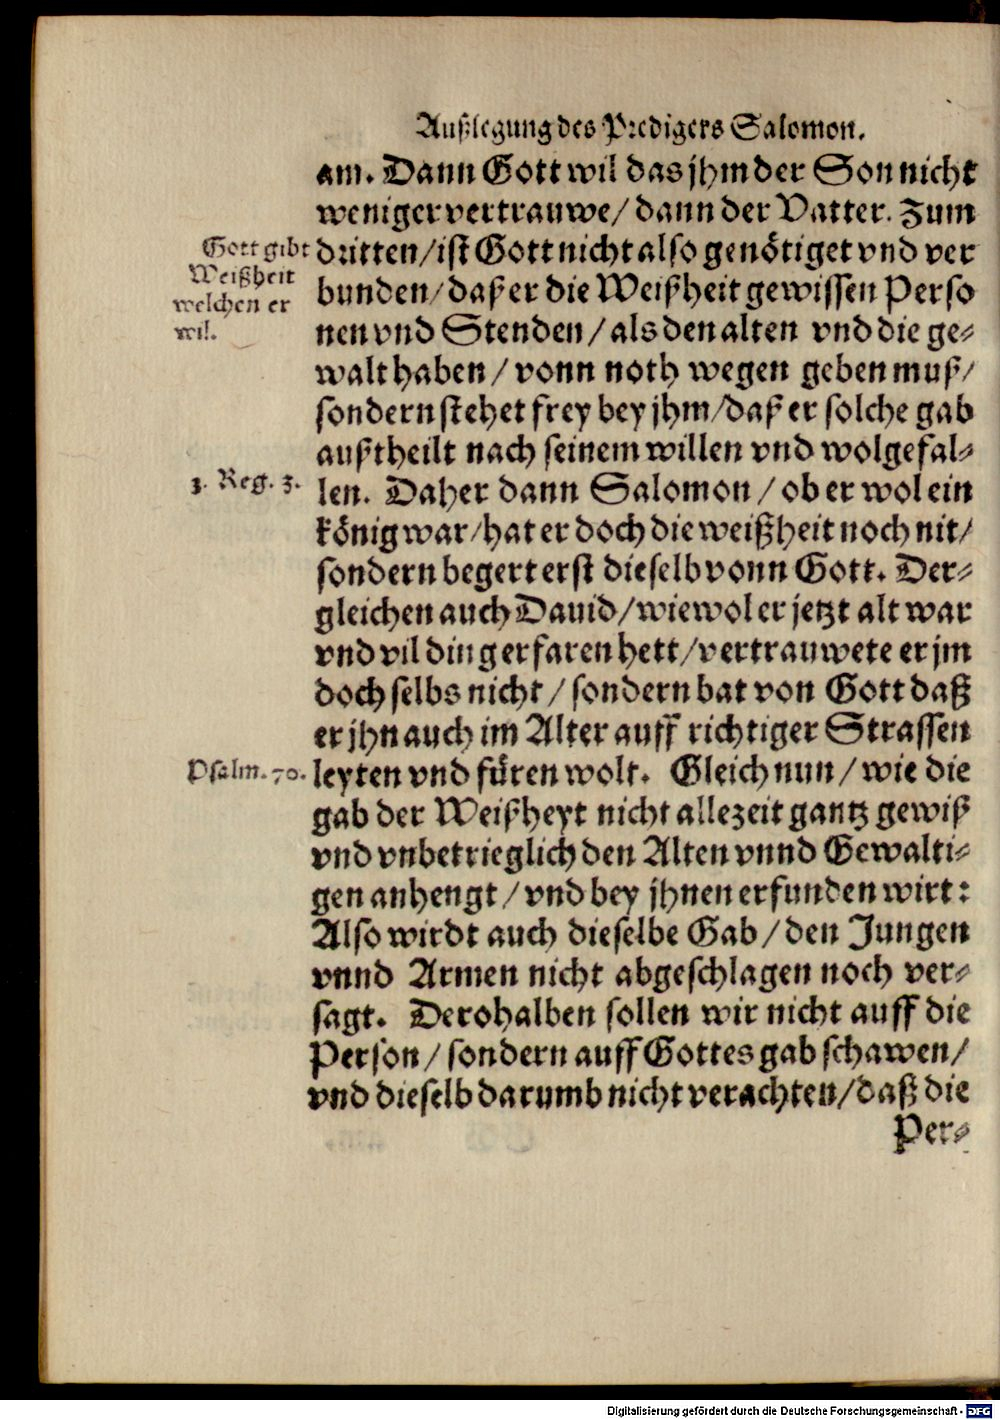 Außlegung des Predigers Salomon.
am. Dann Gott wil das jhm der Son nicht
weniger vertrauwe/ dann der Vatter. Zum
Gott gibt
Weißheit
welchen er
wil.
dritten/ ist Gott nicht also genötiget vnd ver
bunden/ daß er die Weißheit gewissen Perso
nen vnd Stenden/ als den alten vnd die ge-
walt haben/ vonn noth wegen geben muß/
sondern stehet frey bey jhm/ daß er solche gab
außtheilt nach seinem willen vnd wolgefal-
3. Reg. 3.
len. Daher dann Salomon/ ob er wol ein
könig war/ hat er doch die weißheit noch nit/
sondern begert erst dieselb vonn Gott. Der-
gleichen auch Dauid/ wiewol er jetzt alt war
vnd vil ding erfaren hett/ vertrauwete er jm
doch selbs nicht/ sondern bat von Gott daß
er jhn auch im Alter auff richtiger Strassen
Psalm. 70.
leyten vnd füren wolt. Gleich nun/ wie die
gab der Weißheyt nicht allezeit gantz gewiß
vnd vnbetrieglich den Alten vnnd Gewalti-
gen anhengt/ vnd bey jhnen erfunden wirt:
Also wirdt auch dieselbe Gab/ den Jungen
vnnd Armen nicht abgeschlagen noch ver-
sagt. Derohalben sollen wir nicht auff die
Person/ sondern auff Gottes gab schawen/
vnd dieselb darumb nicht verachten/ daß die
Per-
Digitalisierung gefördert durch die Deutsche Forschungsgemeinschaft - DFG